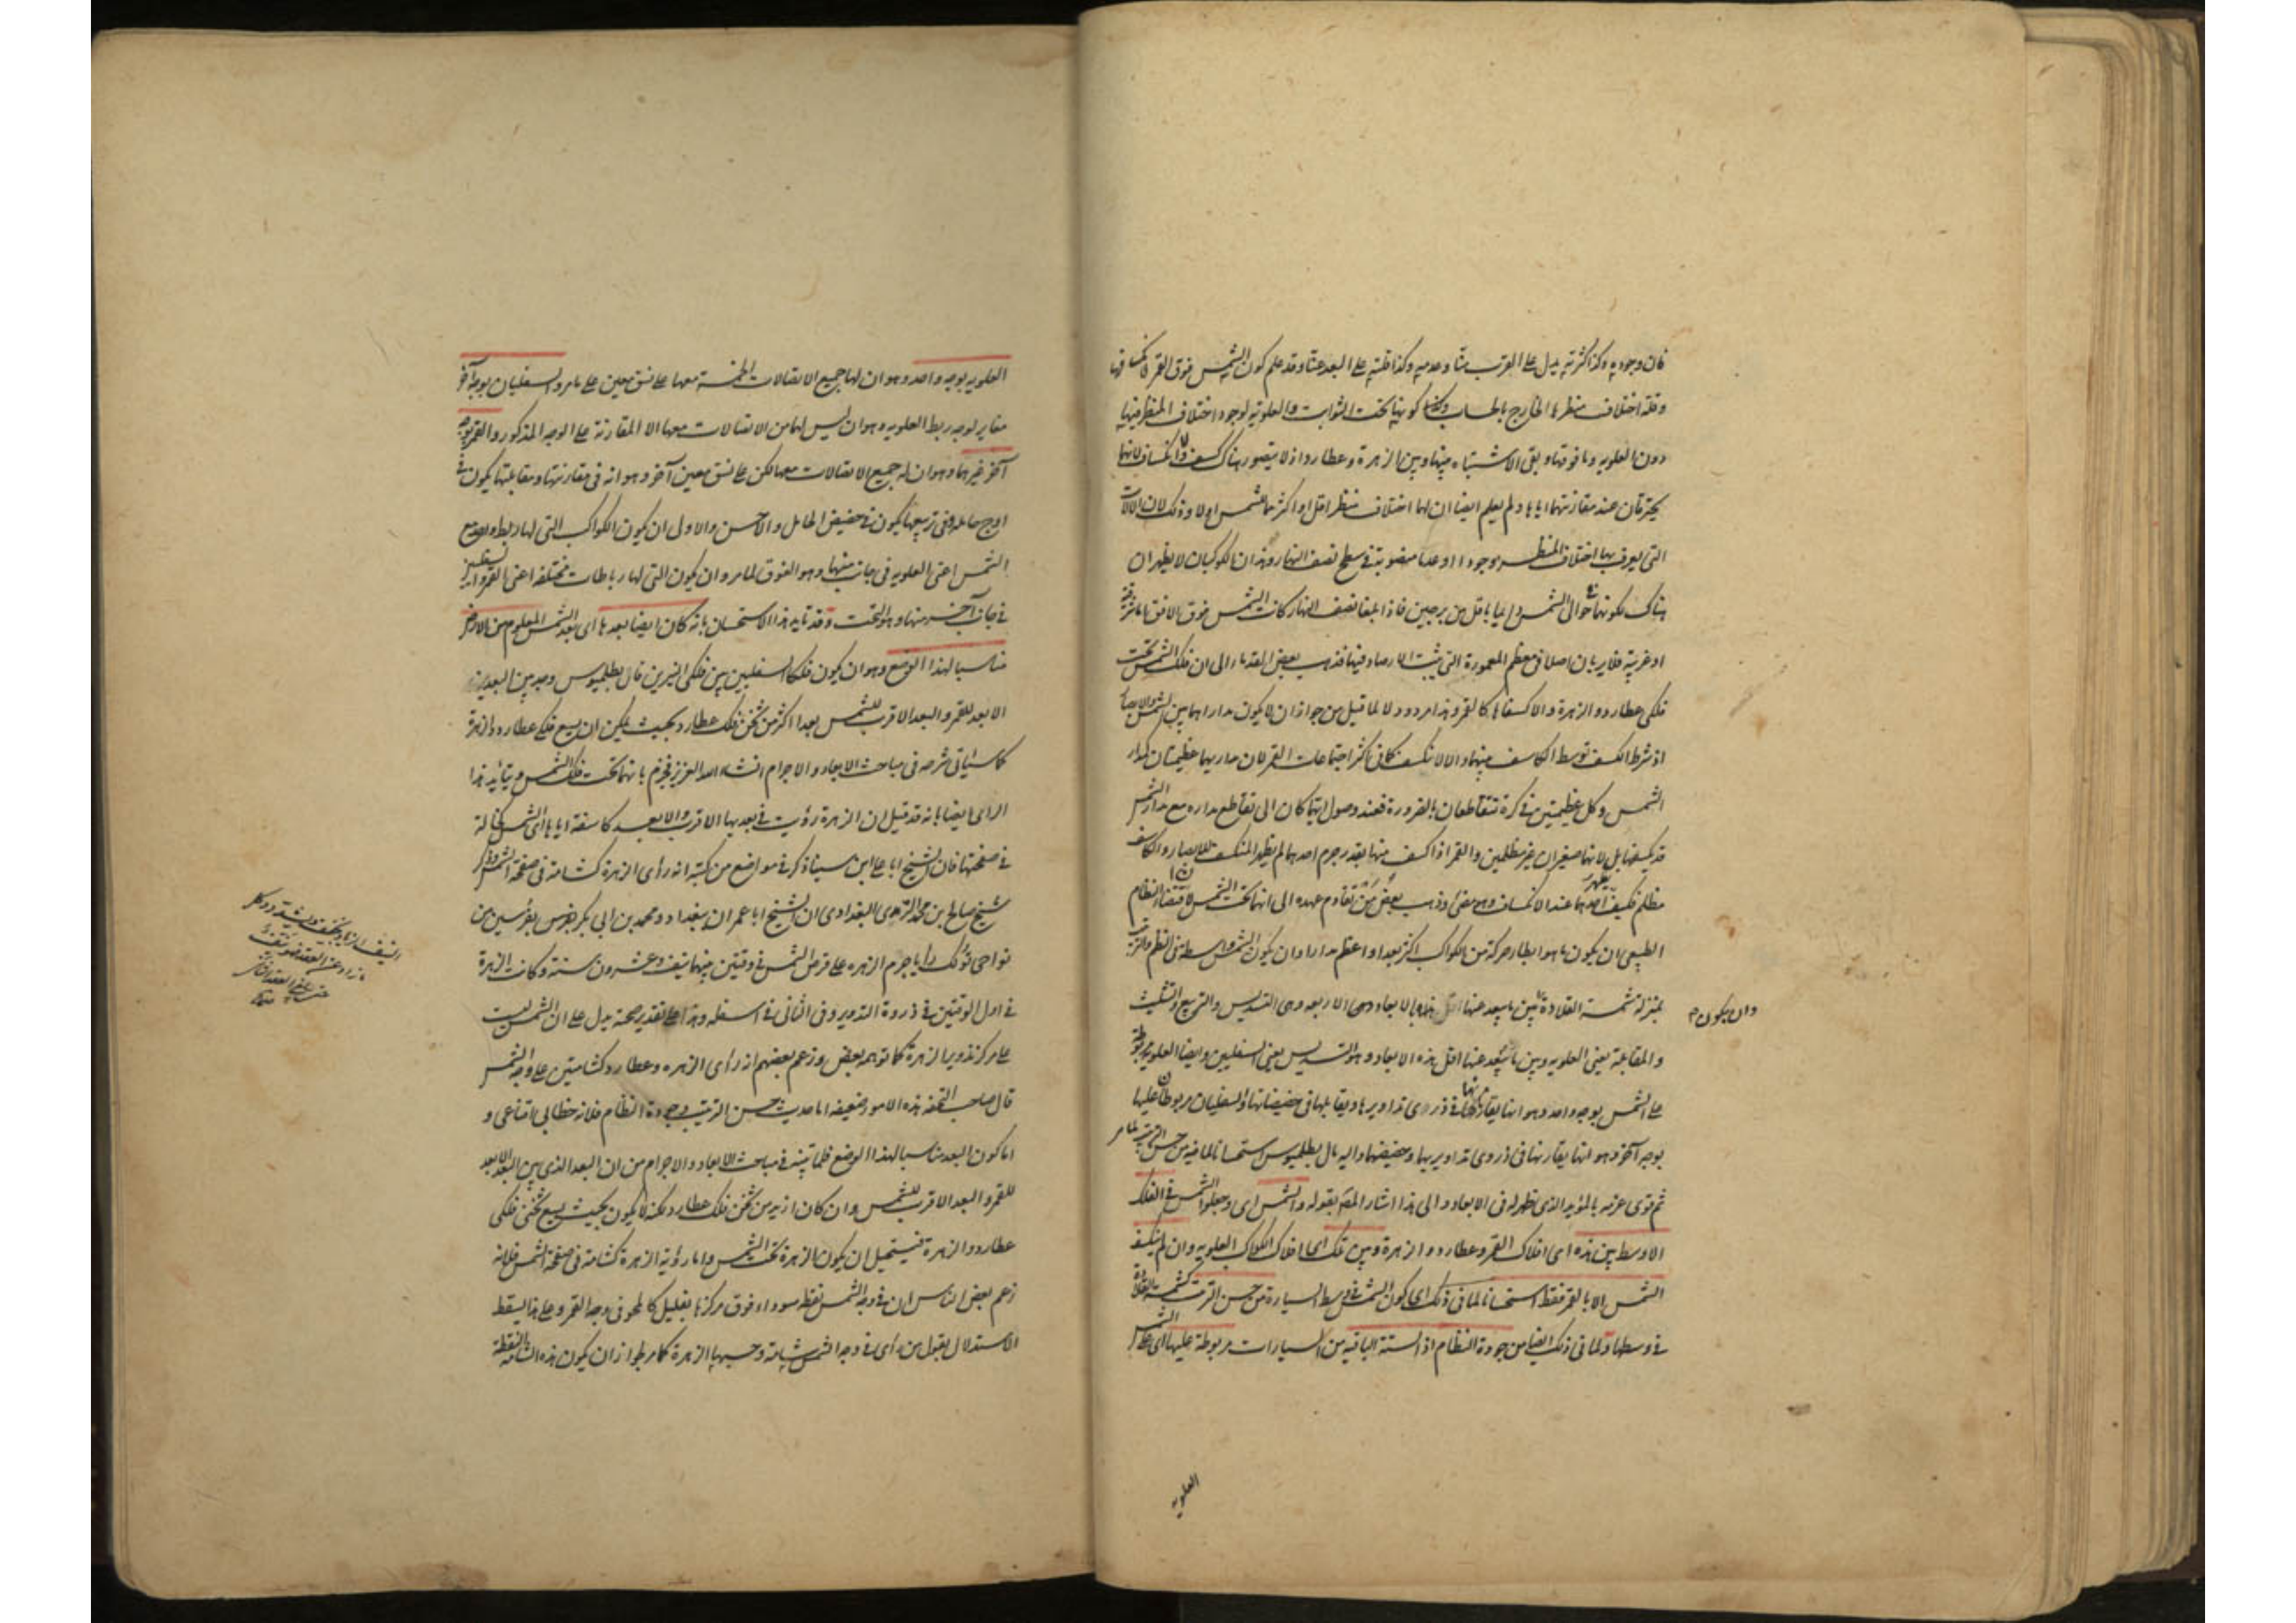 فان وجوديه وكذا كثرته يدل على القرب منا وعدميه وكذا قلته على البعد عنا وقد علم كون الشمس فوق القمر
وقلة اختلاف منظرها الخارج بالحساب كونها تحت الثوابت والعلوية لوجود اختلاف المنظر فيها
دون العلويه وما فوقها وبقى الاشتباه بينها وبين الزهرة وعطارد اذ لا يتصور هناك كسف ولا انكساف لانهما
يحترقان عند مقارنتهما اياها ولم يعلم ايضا ان لهما اختلاف منظر اقل او اكثر مما للشمس او لا وذلك لان الالات
التى يعرف بها اختلاف المنظر وجودا او عدما منصوبة فى سطح نصف النهار وهذان الكوكبان لا يظهران
هناك لكونهما حوالى الشمس دايما باقل من برجين فاذا بلغا نصف النهار كانت الشمس فوق الافق اما شرقية
او غربية فلا يريان اصلا فى معظم المعمورة التى يثبت الارصاد فيها فذهب بعض القدماء الى ان فلك الشمس تحت
فلكى عطارد والزهرة والا كسفاها كالقمر وهذا مردود لا لما قيل من جواز ان لا يكون مداراهما بين الشمس والابصار
اذ شرط الكسف توسط الكاسف بينهما والا لا تنكسف كما فى اكثر اجتماعات القمر لان مداريهما عظيمتان كمدار
الشمس وكل عظيمتين فى كرة تتقاطعان بالضرورة فعند وصول ايهما كان الى تقاطع مداره مع مدار الشمس
قد يكسفها بل لانهما صغيران غير مظلمين والقمر اذا كسف منها بقدر جرم احدهما لم يظهر المنكسف للابصار والكاسف
مظلم فكيف يظهر عند الانكساف وهو مضئ وذهب بعض من تقادم عهده الى انهما تحت الشمس لاقتضاء النظام
الطبيعى ان يكون ما هو ابطا حركة من الكواكب اكثر بعدا واعظم مدارا وان يكون الشمس واسطة فى النظم والترتيب
بمنزلة شمسة القلادة بين ما يبعد عنها الابعاد وهى الاربعة وهى التسديس والتربيع والتثليث
وان يكون م
والمقابلة يعنى العلويه وبين ما يبعد عنها اقل هذه الابعاد وهو التسديس يعنى السفليين وايضا العلوية مربوطة
على الشمس بوجه واحد وهو انها يقارنها فى ذرى تداويرها ويقابلها فى حضيضاتها والسفليان مربوطان عليها
بوجه آخر وهو انها يقارنها فى ذروى تداويريها وحضيضهما واليه مال بطلميوس استحسانا لما فيه من حسن الترتيب لما مر
ثم قوى عزمه بالمؤيد الذى ظهر له فى الابعاد والى هذا اشار المص بقوله والشمس اى وجعلوا الشمس فى الفلك
الاوسط بين هذه اى افلاك القمر وعطارد والزهرة وبين تلك اى افلاك الكواكب العلويه وان لم ينكسف
الشمس الا بالقمر فقط استحسانا لما فى ذلك اى كون الشمس فى وسط السيارة من حسن الترتيب كشمسة القلادة
فى وسطها ولما فى ذلك ايضا من جودة النظام اذ الستة الباقيه من السيارات مربوطة عليها اى على الشمس
العلويه
العلويه بوجه واحد وهو ان لها جميع الاتصالات الخمسة معها على نسق معين على ما مر والسفليان بوجه آخر
مغاير لوجه ربط العلويه وهو ان ليس لهما من الاتصالات معها الا المقارنة على الوجه المذكور والقمر بوجه
آخر غيرهما وهو ان له جميع الاتصالات معها لكن على نسق معين آخر وهو انه فى مقارنتها ومقابلتها يكون فى
اوج حامله وفى تربيعها يكون فى حضيض الحامل والاحسن والاولى ان يكون الكواكب التى لها ربط واحد مع
الشمس اعنى العلويه فى جانب منها وهو الفوق لما مر وان يكون التى لها رباطات مختلفه اعنى القمر والسفليين
فى جانب آخر منها وهو التحت وقد تايد هذا الاستحسان بانه كان ايضا بعدها اى بعد الشمس المعلوم من الارض
مناسبا لهذا الوضع وهو ان يكون فلكا السفليين بين فلكى النيرين فان بطلميوس وجد بين البعد
الابعد للقمر والبعد الاقرب للشمس بعدا اكثر من ثخن فلك عطارد بحيث يمكن ان يسع فلكى عطارد والزهرة
كما سيأتى شرحه فى مباحث الابعاد والاجرام انشاء الله العزيز فجزم بانهما تحت فلك الشمس ويتأيد هذا
الراى ايضا بانه قد قيل ان الزهرة رؤيت فى بعديها الاقرب والابعد كاسفة اياها اى الشمس كخاله
فى صفحتها فان الشيخ ابا على ابن سينا ذكر فى مواضع من كتبه انه راى الزهرة كشامة فى صفحة الشمس وذكر
شيخ صالح بن محمد البغدادى ان الشيخ ابا عمران ببغداد ومحمد بن ابى بكر بفرس من
نواحى رايا جرم الزهره على قرص الشمس فى وقتين بينهما نيف وعشرون سنة وكانت الزهرة
فى اول الوقتين فى ذروة التدوير وفى الثانى فى اسفله وهذا على تقدير صحته يدل على ان الشمس ليست
على مركز تدوير الزهرة كما توهم بعض وزعم بعضهم انه راى الزهره وعطارد كشامتين على وجه الشمس
قال صاحب التحفة هذه الامور ضعيفه اما حديث حسن الترتيب وجودة النظام فلانه خطابى اقناعى و
اما كون البعد مناسبا لهذا الوضع فلما تبين فى مباحث الابعاد والاجرام من ان البعد الذى بين البعد الابعد
للقمر والبعد الاقرب للشمس وان كان ازيد من ثخن فلك عطارد لكنه لا يكون بحيث يسع ثخنى فلكى
عطارد والزهرة فيستحيل ان يكون الزهرة تحت الشمس واما رؤية الزهرة كشامة فى صفحة الشمس فلانه
زعم بعض الناس ان فى وجه الشمس نقطة سوداء فوق مركزها بقليل كالمحو فى وجه القمر وعلى هذا يسقط
الاستدلال بقول من راى فى وجه الشمس شامة وحسبها الزهرة كما مر لجواز ان يكون هذه الشامة النقطة